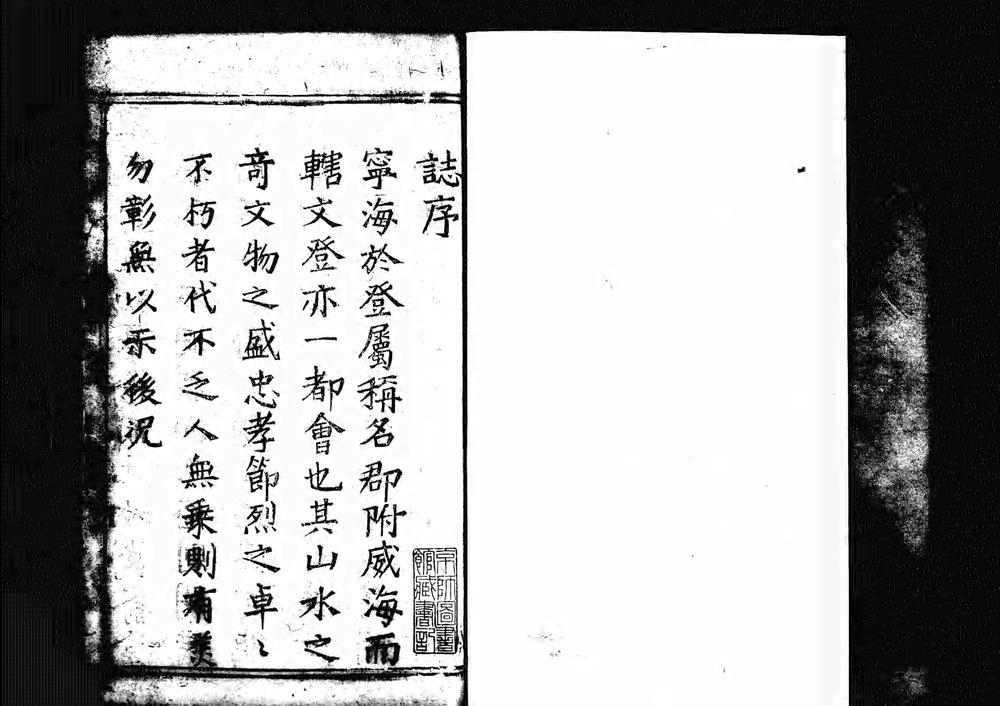 誌序
寧海於登屬稱名郡附威海而
轄文登亦一都會也其山水之
奇文物之盛忠孝節烈之卓〻
不朽者代不乏人無乘則有美
勿彰無以示後況
京師圖書
館藏書記